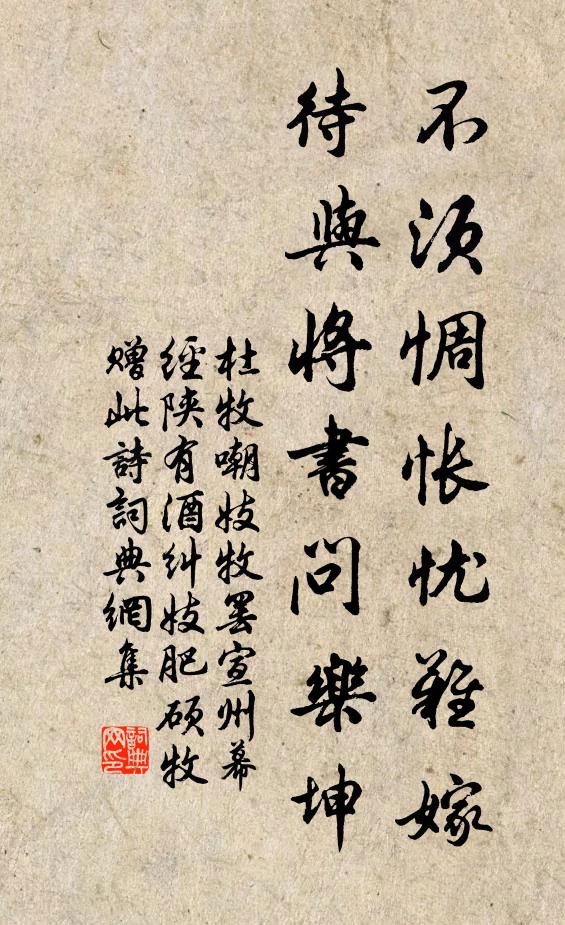 不须惆怅忧難嫁
待與將書問樂坤
杜牧嘲妓牧罢宣州幕
經陕有酒糾妓肥硕牧
贈此詩詞典網集
詞典網印